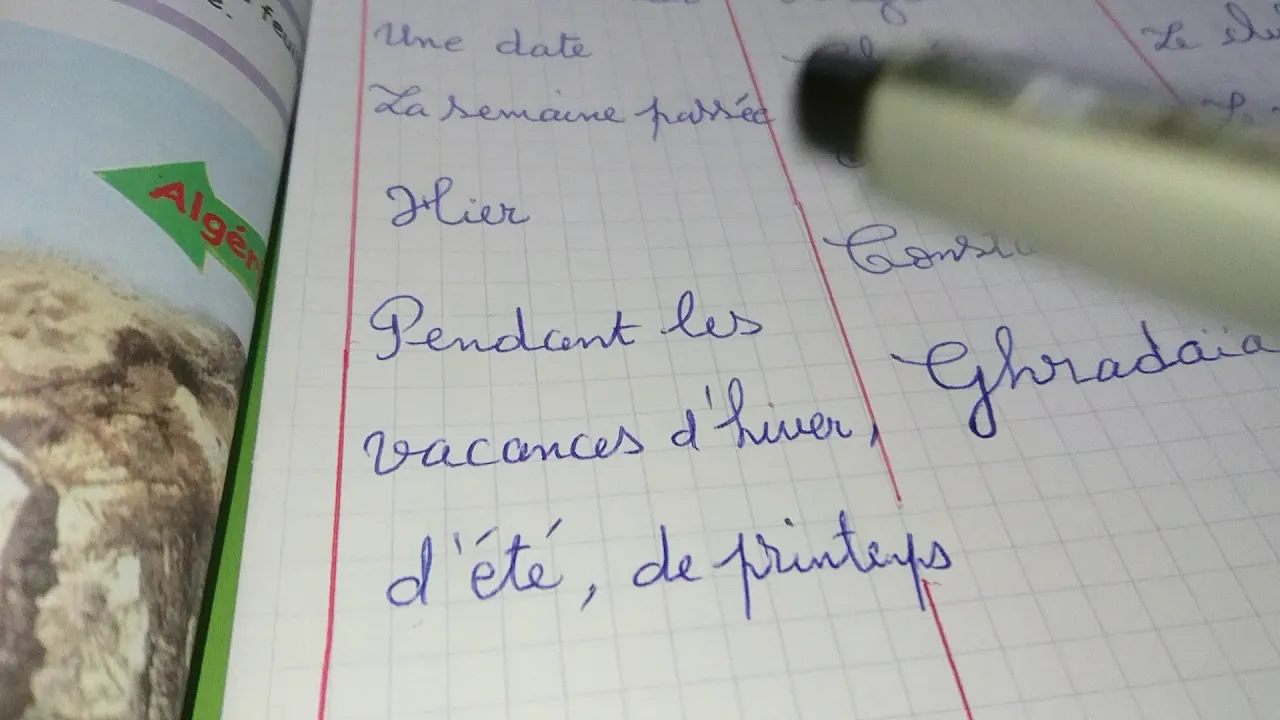 Une date
La semaine passée
Hier
Pendant les
vacances d'hiver,
d'été, de printemps
Ghradaïa
Le
Algér